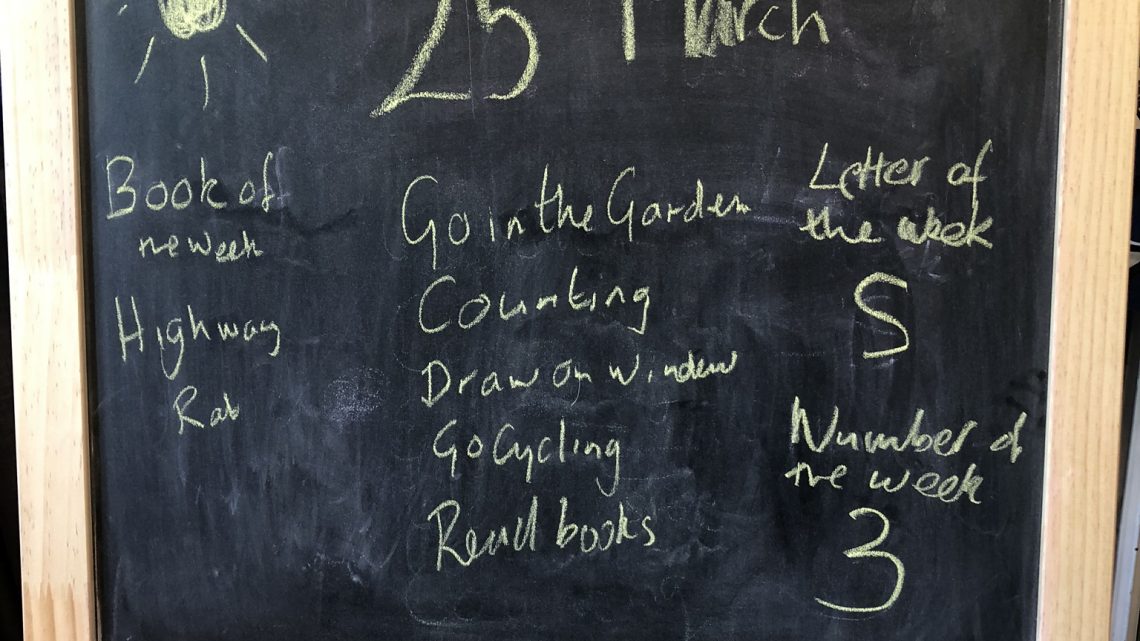 25 March
Book of
the week
Highway
Rat
Go in the Garden
Counting
Draw on window
Go Cycling
Read books
Letter of
the week
S
Number of
the week
3